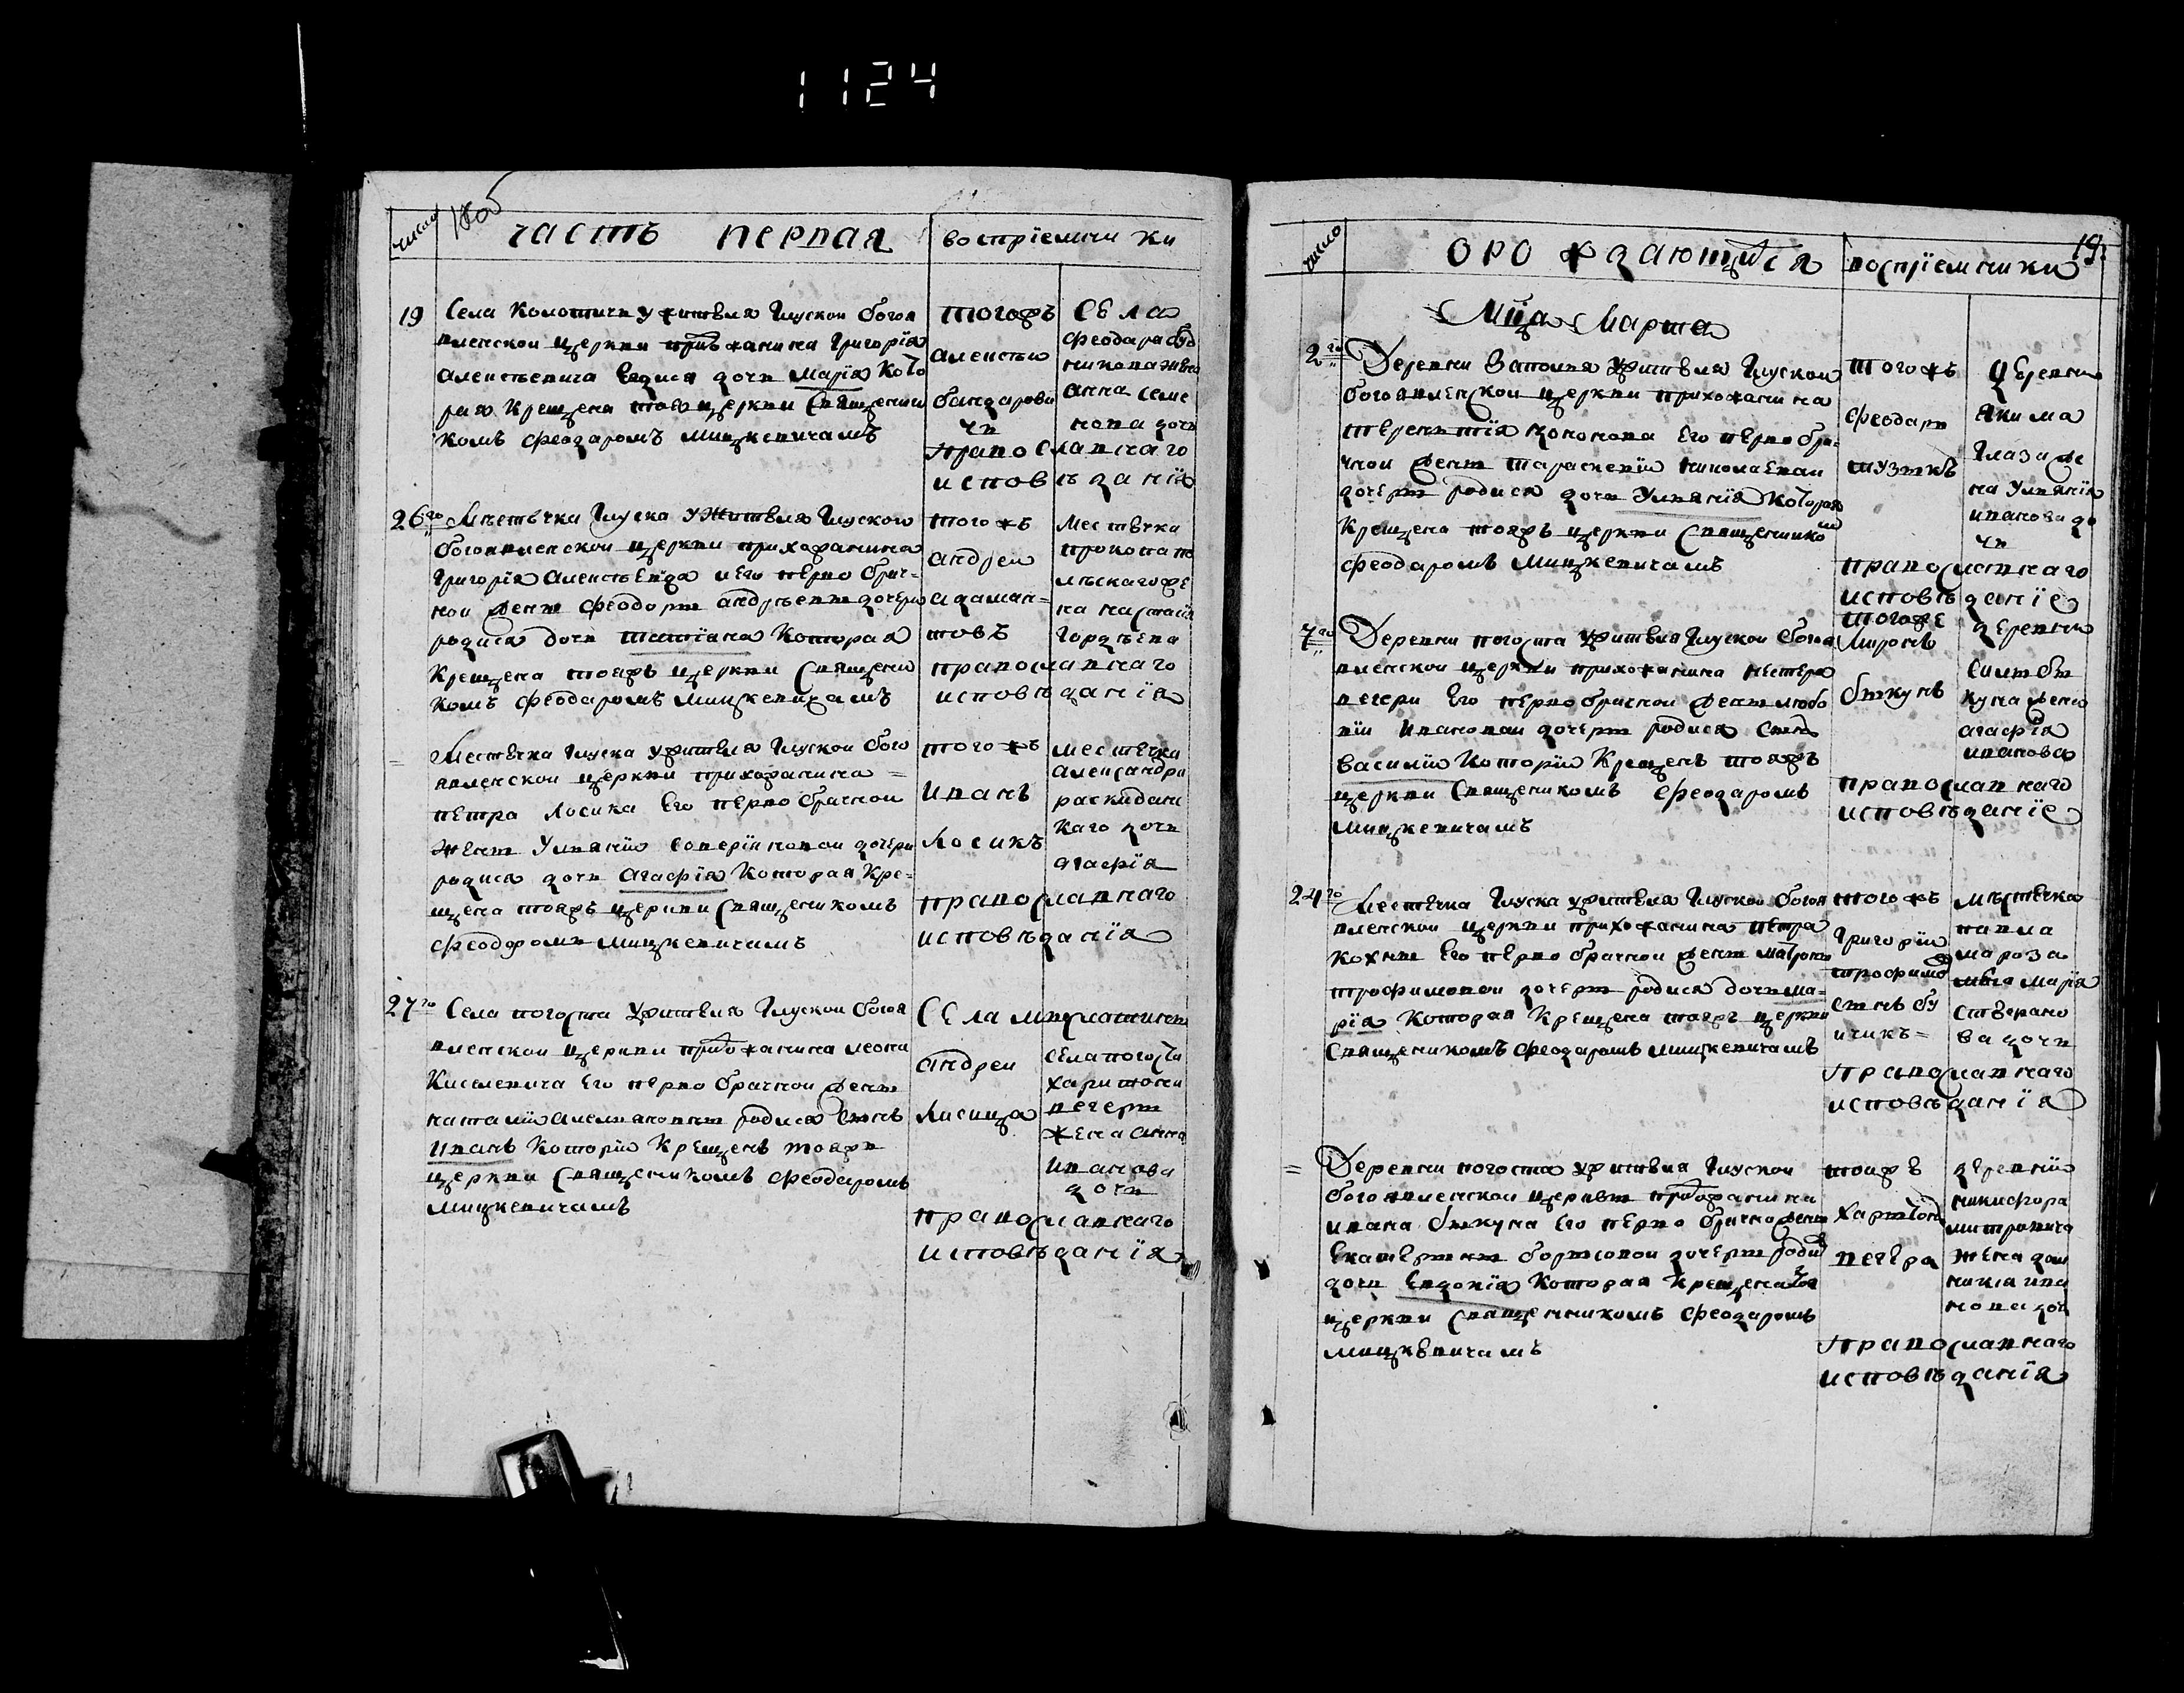 1124
число
18об
часть первая
воспрїемники
19
Села Колотичи ужитвля Глуской богоя
вленской церкви прихожанина Григорїя
Алексѣевича родися дочь Марїя кото
рая крещена тояжъ церкви священни
комъ Феодаромъ Мицкевичамъ
тогожъ
Алексѣи
бандарови
чь
села
Феодара
Анна Семе
нова дочь
православнаго
исповѣданїя
26го
Местечка Глуска ужитвля Глуской
богоявленской церкви прихожанина
Григорїя и Его перво брач-
ной жены Феодоры Андрѣевы дочери
родися дочь Татїана которая
крещена тояжъ церкви священи
комъ Феодаромъ Мицкевичамъ
тогожъ
Андреи
Адаман-
товъ
Местечка
Прокопа По
лѣскаго же
на Настасїя
Гордѣева
православнаго
исповѣданїя
=
Местечка Глуска ужитвля Глуской бого
явленской церкви прихожанина =
Петра Лосика Его перво брачной
жены Улляніи дочери
родися дочь Агафїя которая кре-
щена тояжъ церкви священикомъ
Феодоромъ Мицкевичамъ
тогожъ
Иванъ
Лосикъ
местечка
Александра
дочь
Агафїя
православнаго
исповѣданїя
27го
Села погоста ужитвля Глуской богоя
вленской церкви прихожанина Леона
Киселевича Его перво брачной жены
Наталїи родися сынъ
Иванъ которїи крещенъ тояжъ
церкви священикомъ Феодаромъ
Мицкевичамъ
Села
Андреи
Лисица
села погоста
Харитона
Печеры
жена Анна
Иванова
дочь
православнаго
исповѣданїя
число
о рождающихся
воспрїемники
19.
Мца Марта
2го
Деревни Заполя ужитвля Глуской
богоявленской церкви прихожанина
Терентїя Его перво бра-
чной жены Параскевїи Николаевой
дочеры родися дочь Улянїя которая
крещена тояжъ церкви священнико
Феодаромъ Мицкевичамъ
тогожъ
Феодаръ
деревни
Якима
Глаза же
на Улянїя
Иванова до
чь
православнаго
исповѣданїе
7го
Деревни погоста ужитвля Глуской богоя
вленской церкви прихожанина Нестера
Печери Его перво брачной жены Любо
вїи Ивановой дочеры родися сынъ
Василїи которїи крещенъ тояжъ
церкви священикомъ Феодаромъ
Мицкевичамъ
тогоже
Миронъ
быкунъ
деревни
Силы бы
куна жена
Агафїя
Иванова
православнаго
исповѣданїе
24го
Местечка Глуска ужитвля Глуской богоя
вленской церкви прихожанина Петра
Его перво брачной жены Матроны
Трофимовой дочеры родися дочь Ма-
рїя которая крещена тояжъ церкви
священикомъ Феодаромъ Мицкевичамъ
тогожъ
Григорїи
Трофимо
сынъ
мѣстечка
Павла
Мароза
Марїя
ва дочь
православнаго
исповѣданїя
=
Деревни погоста ужитвля Глуской
богоявленской церквы прихожанина
Ивана быкуна Его перво брачно жены
Екатерыны борысовой дочеры роди
дочь Евдокїя которая крещена тоя
церкви священникомъ Феодаромъ
Мицкевичамъ
тоижъ
Харытонъ
Печера
деревнїи
Никифора
Митровича
жена Дом
никїя Ива
нова доч
православнаго
исповѣданїя